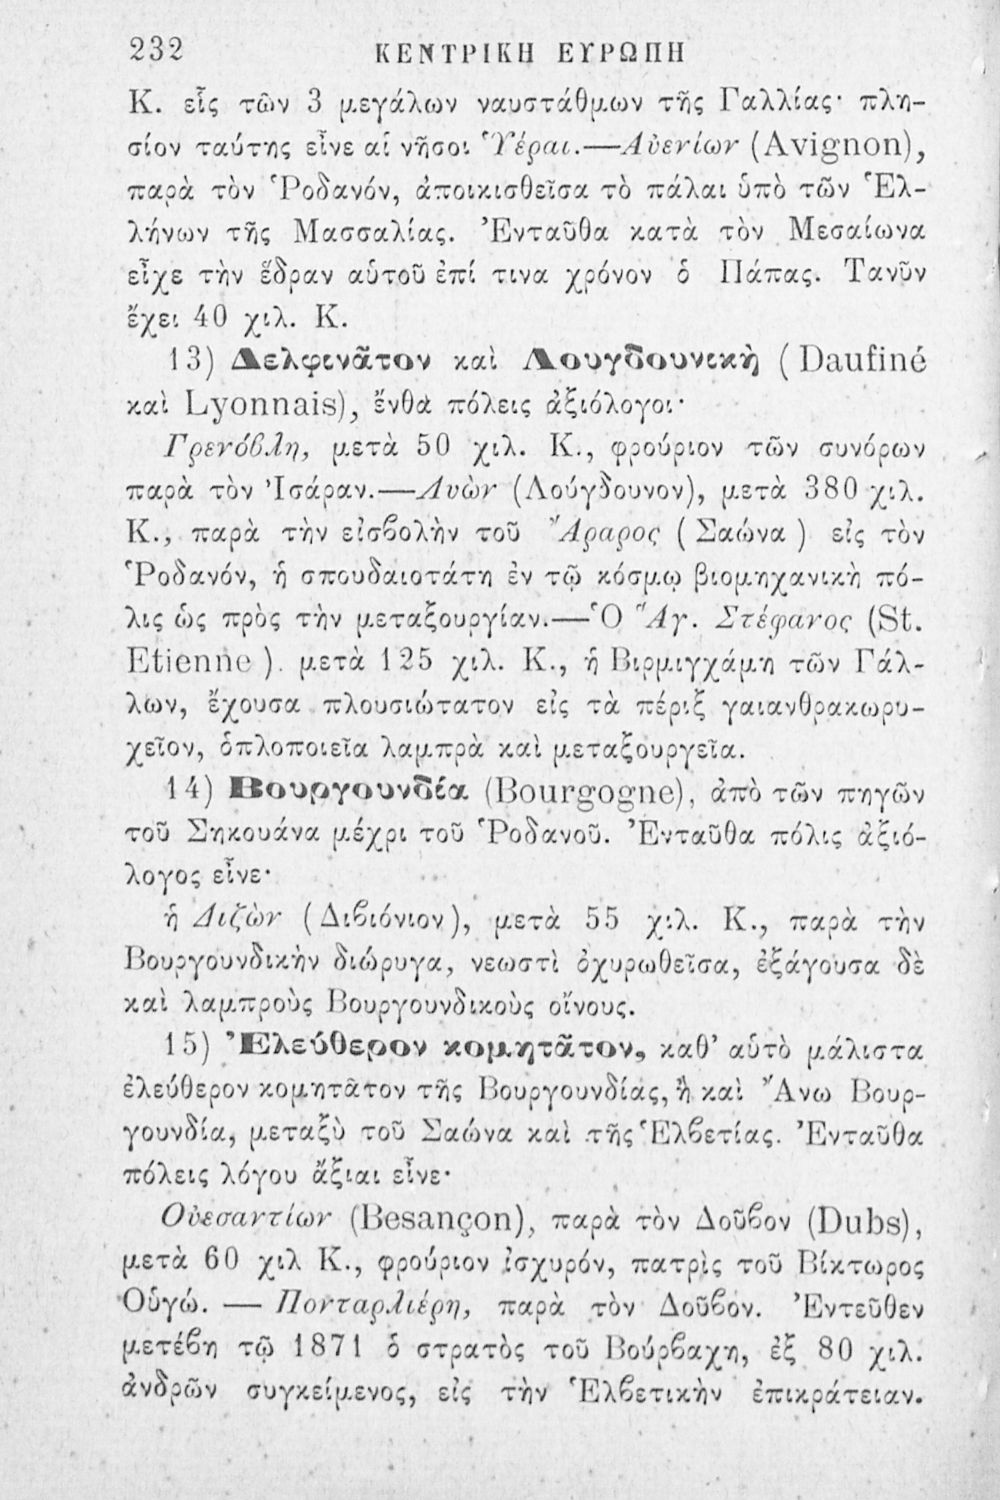 232 ΚΕΝΤΡΙΚΗ ΕΥΡΩΠΗ
Κ. εἷς τῶν 3 μεγάλων ναυστάθμων τῆς Γαλλίας· πλη-
σίον ταύτης εἶνε αἱ νῆσοι Ὑέραι.—Αὐενίων (Avignon),
παρὰ τὸν Ῥοδανόν, ἀποικισθεῖσα τὸ πάλαι ὑπὸ τῶν Ἑλ-
λήνων τῆς Μασσαλίας. Ἐνταῦθα κατὰ τὸν Μεσαίωνα
εἶχε τὴν ἕδραν αὑτοῦ ἐπί τινα χρόνον ὁ Πάπας. Τανῦν
ἔχει 40 χιλ. Κ.
13) Δελφινᾶτον καὶ Λουγδουνικὴ (Daufiné
καὶ Lyonnais), ἔνθα πόλεις ἀξιόλογοι·
Γρενόβλη, μετὰ 50 χιλ. Κ., φρούριον τῶν συνόρων
παρὰ τὸν Ἰσάραν.—Λυὼν (Λούγδουνον), μετὰ 380 χιλ.
Κ., παρὰ τὴν εἰσβολὴν τοῦ Ἄραρος (Σαώνα) εἰς τὸν
Ῥοδανόν, ἡ σπουδαιοτάτη ἐν τῷ κόσμῳ βιομηχανικὴ πό-
λις ὡς πρὸς τὴν μεταξουργίαν.—Ὁ Ἅγ. Στέφανος (St.
Etienne). μετὰ 125 χιλ. Κ., ἡ Βιρμιγχάμη τῶν Γάλ-
λων, ἔχουσα πλουσιώτατον εἰς τὰ πέριξ γαιανθρακωρυ-
χεῖον, ὁπλοποιεῖα λαμπρὰ καὶ μεταξουργεῖα.
14) Βουργουνδία (Bourgogne), ἀπὸ τῶν πηγῶν
τοῦ Σηκουάνα μέχρι τοῦ Ῥοδανοῦ. Ἐνταῦθα πόλις ἀξιό-
λογος εἶνε·
ἡ Διζὼν (Διβιόνιον), μετὰ 55 χιλ. Κ., παρὰ τὴν
Βουργουνδικὴν διώρυγα, νεωστὶ ὀχυρωθεῖσα, ἐξάγουσα δὲ
καὶ λαμπροὺς Βουργουνδικοὺς οἴνους.
15) Ἐλεύθερον κομητᾶτον, καθ’ αὑτὸ μάλιστα
ἐλεύθερον κομητᾶτον τῆς Βουργουνδίας, ἢ καὶ Ἄνω Βουρ-
γουνδία, μεταξὺ τοῦ Σαώνα καὶ τῆς Ἑλβετίας. Ἐνταῦθα
πόλεις λόγου ἄξιαι εἶνε·
Οὐεσαντίων (Besançon), παρὰ τὸν Δοῦβον (Dubs),
μετὰ 60 χιλ Κ., φρούριον ἰσχυρόν, πατρὶς τοῦ Βίκτωρος
Οὑγώ. — Πονταρλιέρη, παρὰ τὸν Δοῦβον. Ἐντεῦθεν
μετέβη τῷ 1871 ὁ στρατὸς τοῦ Βούρβαχη, ἐξ 80 χιλ.
ἀνδρῶν συγκείμενος, εἰς τὴν Ἑλβετικὴν ἐπικράτειαν.